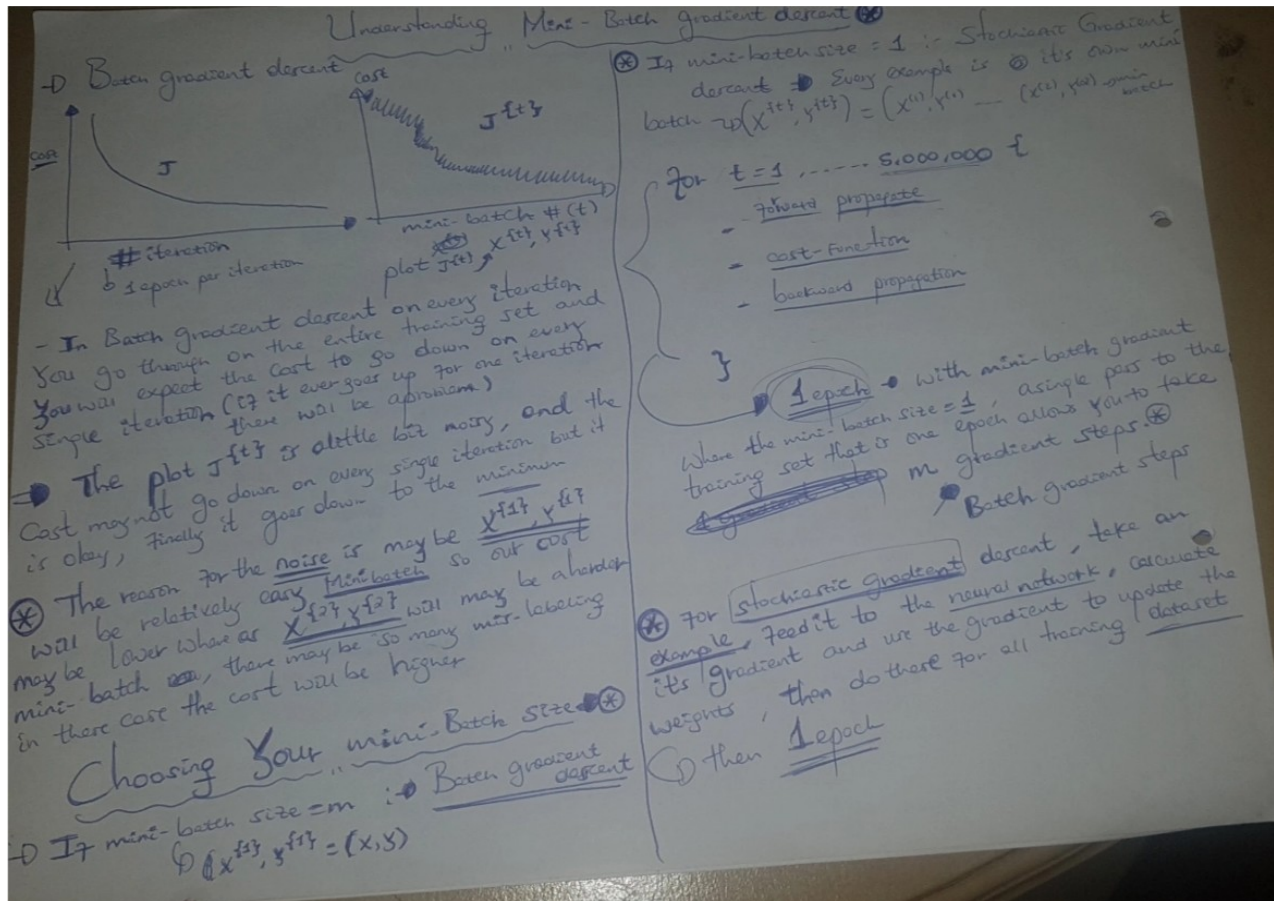 Understanding Mini-Batch gradient descent
Batch gradient descent
cost
J
# iteration
1 epoch per iteration
cost
J^{t}
mini-batch # (t)
plot J^{t} X^{t}, Y^{t}
- In Batch gradient descent on every iteration
You go through on the entire training set and
You will expect the cost to go down on every
single iteration (if it ever goes up for one iteration
there will be a problem)
The plot J^{t} is alittle bit noisy, and the
Cost may not go down on every single iteration but it
is okay, finally it goes down to the minimum
* The reason for the noise is may be X^{1}, Y^{1}
will be relatively easy Mini-batch so our cost
may be lower where as X^{2}, Y^{2} will may be a harder
mini-batch, there may be so many mis-labeling
in there case the cost will be higher
Choosing Your mini-Batch size *
If mini-batch size = m : Batch gradient
descent
(X^{1}, Y^{1} = (X, Y)
* If mini-batch size = 1 :- Stochiastic Gradient
descent Every example is it's own mini
batch (X^{t}, Y^{t}) = (X^(1), Y^(1) ---- (X^(2), Y^(2) min
batch
for t = 1 , ..... 5,000,000 {
- forward propagate
- cost-Function
- backward propagation
}
1 epoch with mini-batch gradient
Where the mini-batch size = 1, asingle pass to the
training set that is one epoch allows you to take
m gradient steps. *
Batch gradient steps
* For stochiastic gradient descent, take an
example, feed it to the neural network, calculate
it's gradient and use the gradient to update the
weights, then do there for all training dataset
then 1 epoch